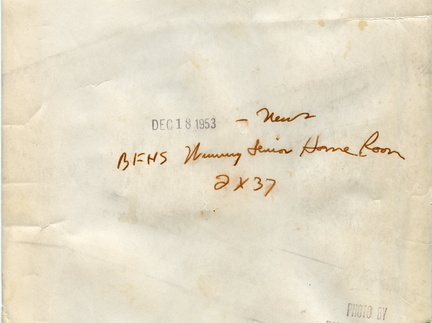 DEC 18 1953 — News
BFHS Winning Senior Home Room
2 X 37
PHOTO BY